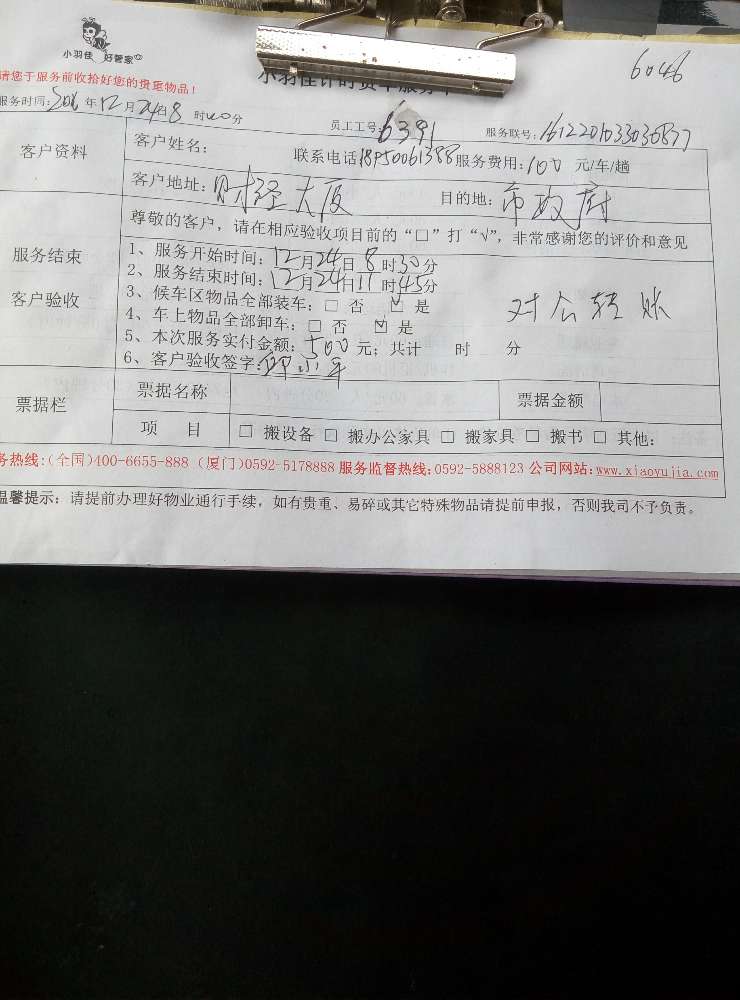 小羽佳 好管家
6046
请您于服务前收拾好您的贵重物品！
小羽佳计时货车服务单
服务时间：2016年12月24日8时00分 员工工号：6391 服务联号：161220103303
客户资料
客户姓名： 联系电话18950061388 服务费用：100元/车/趟
客户地址：财经大厦 目的地：市政府
尊敬的客户，请在相应验收项目前的“□”打“√”，非常感谢您的评价和意见
服务结束
客户验收
1、服务开始时间：12月24日8时30分
2、服务结束时间：12月24日11时45分
3、候车区物品全部装车：□ 否 ☑ 是
4、车上物品全部卸车：□ 否 ☑ 是
对公转账
5、本次服务实付金额：500元；共计 时 分
6、客户验收签字：
票据栏
票据名称 票据金额
项 目 □ 搬设备 □ 搬办公家具 □ 搬家具 □ 搬书 □ 其他：
务热线：(全国)400-6655-888 (厦门)0592-5178888 服务监督热线：0592-5888123 公司网站：www.xiaoyujia.com
温馨提示：请提前办理好物业通行手续，如有贵重、易碎或其它特殊物品请提前申报，否则我司不予负责。